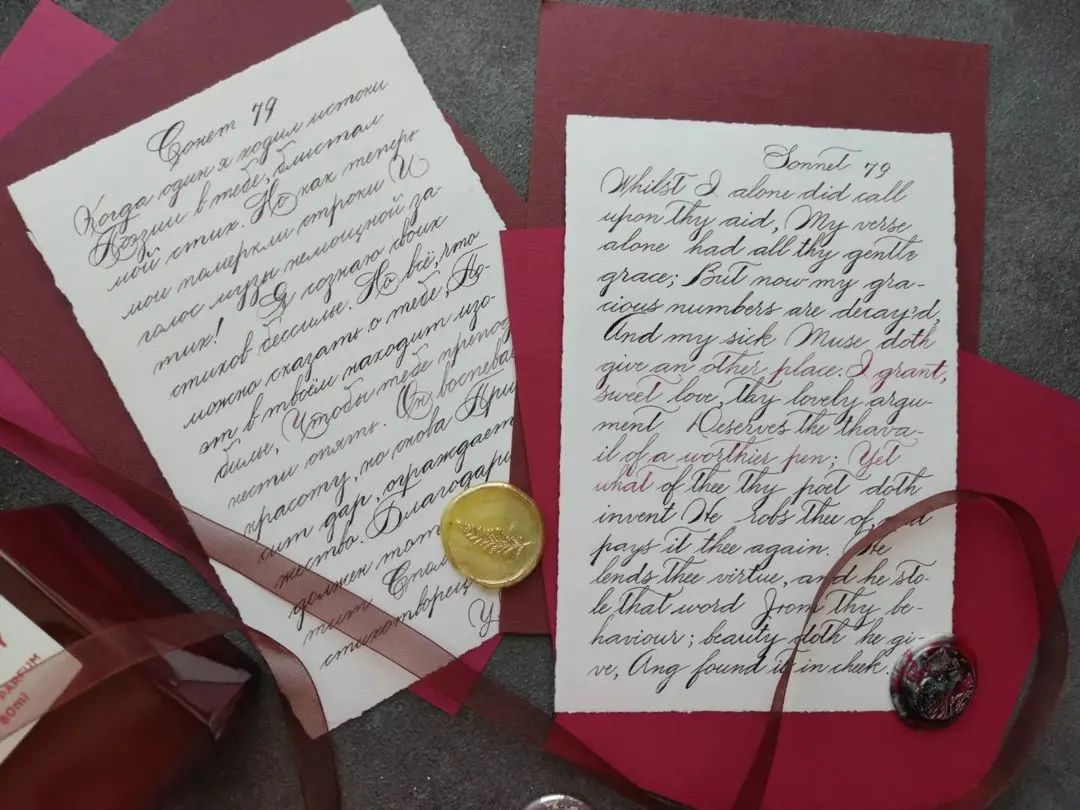 Сонет 79
Когда один я ходил истоки
Поэзии в тебе, блистал
мой стих. Но как теперь
мои померкли строки И
голос музы немощной за-
тих! Я сознаю своих
стихов бессилье. Но всё, что
можно сказать о тебе, По-
эт в твоём находит изо-
билье, Чтобы тебе препод
нести опять. Он воспевае
красоту, но снова При
сит дар, ограждает
жество. Благодари
должен
тит Стол
стихотворец
У
Sonnet 79
Whilst I alone did call
upon thy aid, My verse
alone had all thy gentle
grace; But now my gra-
cious numbers are decay'd,
And my sick Muse doth
give an other place. I grant,
sweet love, thy lovely argu-
ment Deserves the thava-
il of a worthier pen; Yet
what of thee thy poet doth
invent He robs thee of, and
pays it thee again. He
lends thee virtue, and he sto-
le that word From thy be-
haviour; beauty doth he gi-
ve, Ang found it in cheek.
Y
PARFUM
80ml